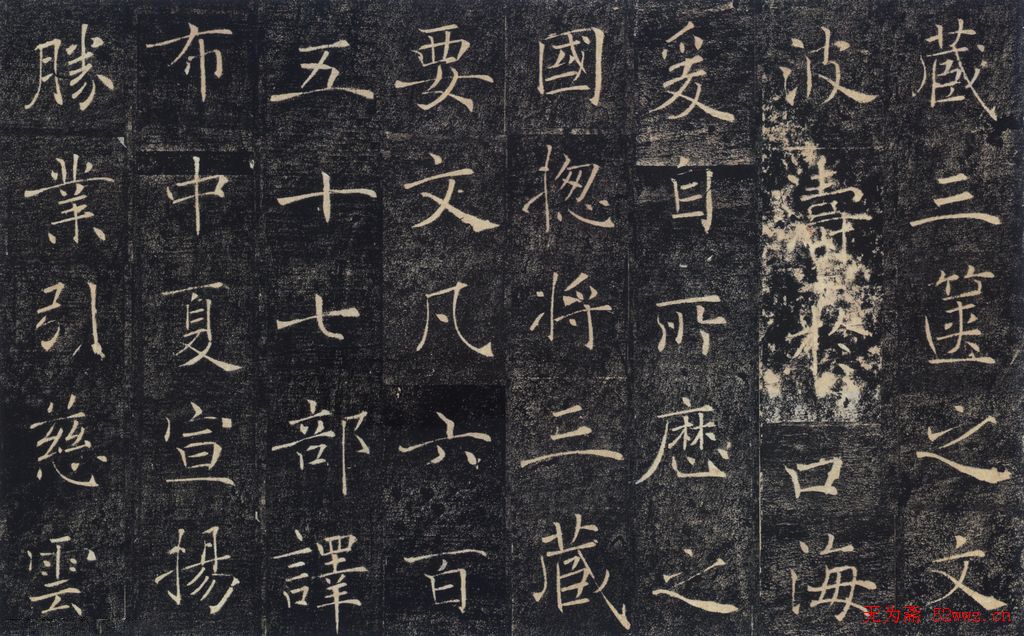 藏三箧之文
波濤於口海
爰自所歷之
國揔將三藏
要文凡六百
五十七部譯
布中夏宣揚
勝業引慈雲
王为斋 52wwz.cn